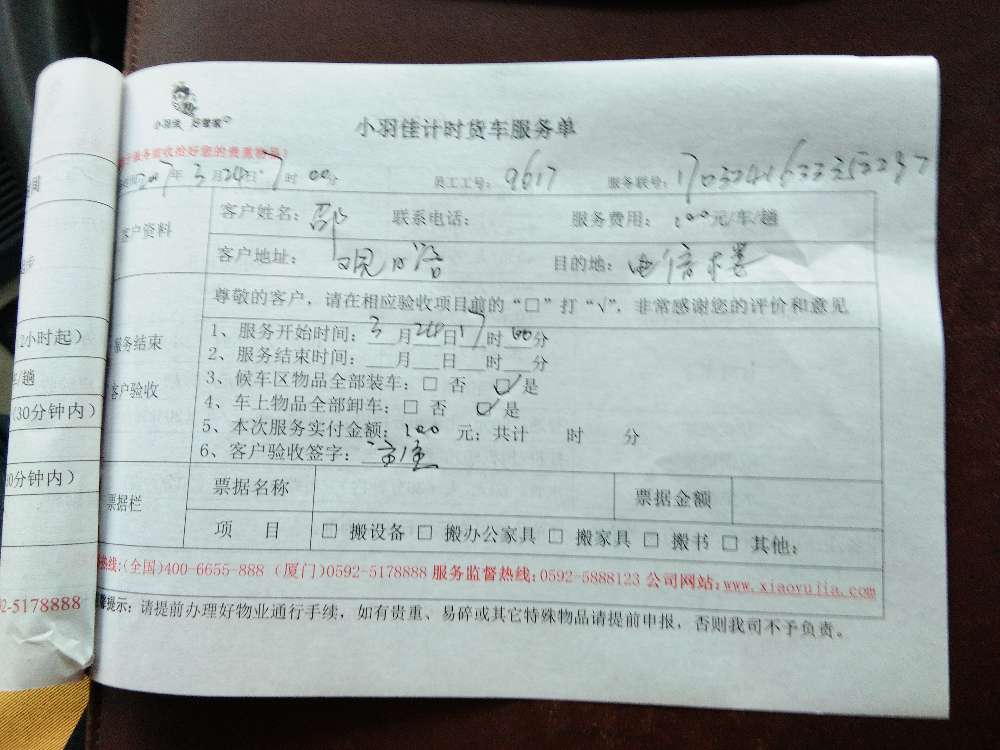 小羽佳 好管家
小羽佳计时货车服务单
服务前请收拾好您的贵重物品!
2017年3月24日17时00分 员工工号: 9617 服务联号:
客户资料
客户姓名: 邵 联系电话: 服务费用: 100元/车/趟
客户地址: 观日路 目的地: 电信楼
尊敬的客户, 请在相应验收项目前的“□”打“√”. 非常感谢您的评价和意见
服务结束
客户验收
1、服务开始时间: 3月24日17时00分
2、服务结束时间: 月 日 时 分
3、候车区物品全部装车: □ 否 ☑ 是
4、车上物品全部卸车: □ 否 ☑ 是
5、本次服务实付金额: 100 元; 共计 时 分
6、客户验收签字:
票据栏
票据名称 票据金额
项 目 □ 搬设备 □ 搬办公家具 □ 搬家具 □ 搬书 □ 其他:
热线:(全国)400-6655-888 (厦门)0592-5178888 服务监督热线:0592-5888123 公司网站:www.xiaoyujia.com
提示: 请提前办理好物业通行手续, 如有贵重、易碎或其它特殊物品请提前申报, 否则我司不予负责。
2小时起)
/趟
(30分钟内)
0分钟内)
92-5178888